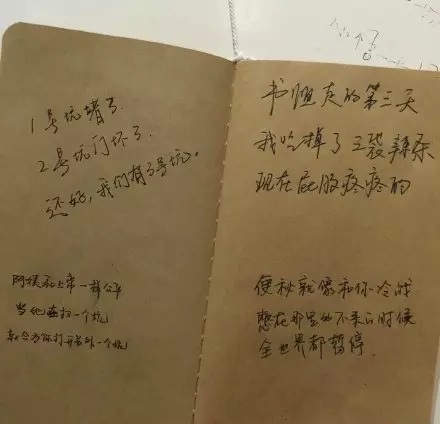 1号坑堵了.
2号坑门坏了.
还好,我们有3号坑。
阿姨和上帝一样公平
当她在扫一个坑
就会为你打开另外一个坑
的第三天
我吃掉了三袋辣条
现在屁股疼疼的
便秘就像和你冷战
憋在那里出不来的时候
全世界都暂停.